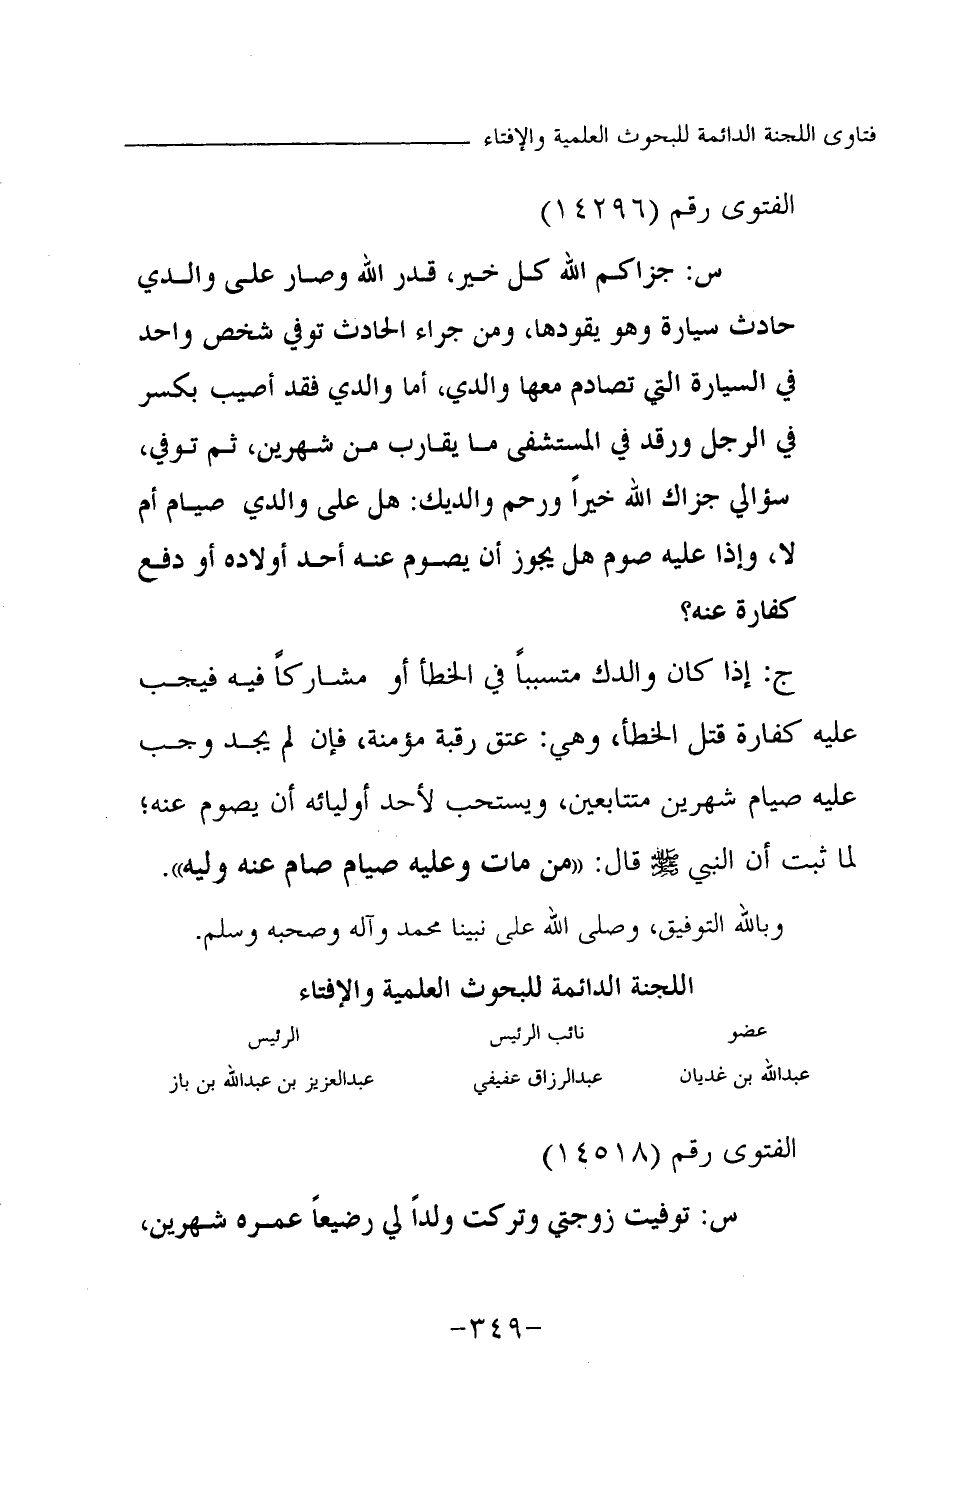 فتاوى اللجنة الدائمة للبحوث العلمية والإفتاء
الفتوى رقم (١٤٢٩٦)
س: جزاكم الله كل خير، قدر الله وصار على والدي
حادث سيارة وهو يقودها، ومن جراء الحادث توفي شخص واحد
في السيارة التي تصادم معها والدي، أما والدي فقد أصيب بكسر
في الرجل ورقد في المستشفى ما يقارب من شهرين، ثم توفي،
سؤالي جزاك الله خيراً ورحم والديك: هل على والدي صيام أم
لا، وإذا عليه صوم هل يجوز أن يصوم عنه أحد أولاده أو دفع
كفارة عنه؟
ج: إذا كان والدك متسبباً في الخطأ أو مشاركاً فيه فيجب
عليه كفارة قتل الخطأ، وهي: عتق رقبة مؤمنة، فإن لم يجد وجب
عليه صيام شهرين متتابعين، ويستحب لأحد أوليائه أن يصوم عنه؛
لما ثبت أن النبي ﷺ قال: «من مات وعليه صيام صام عنه وليه».
وبالله التوفيق، وصلى الله على نبينا محمد وآله وصحبه وسلم.
اللجنة الدائمة للبحوث العلمية والإفتاء
عضو نائب الرئيس الرئيس
عبدالله بن غديان عبدالرزاق عفيفي عبدالعزيز بن عبدالله بن باز
الفتوى رقم (١٤٥١٨)
س: توفيت زوجتي وتركت ولداً لي رضيعاً عمره شهرين،
-٣٤٩-